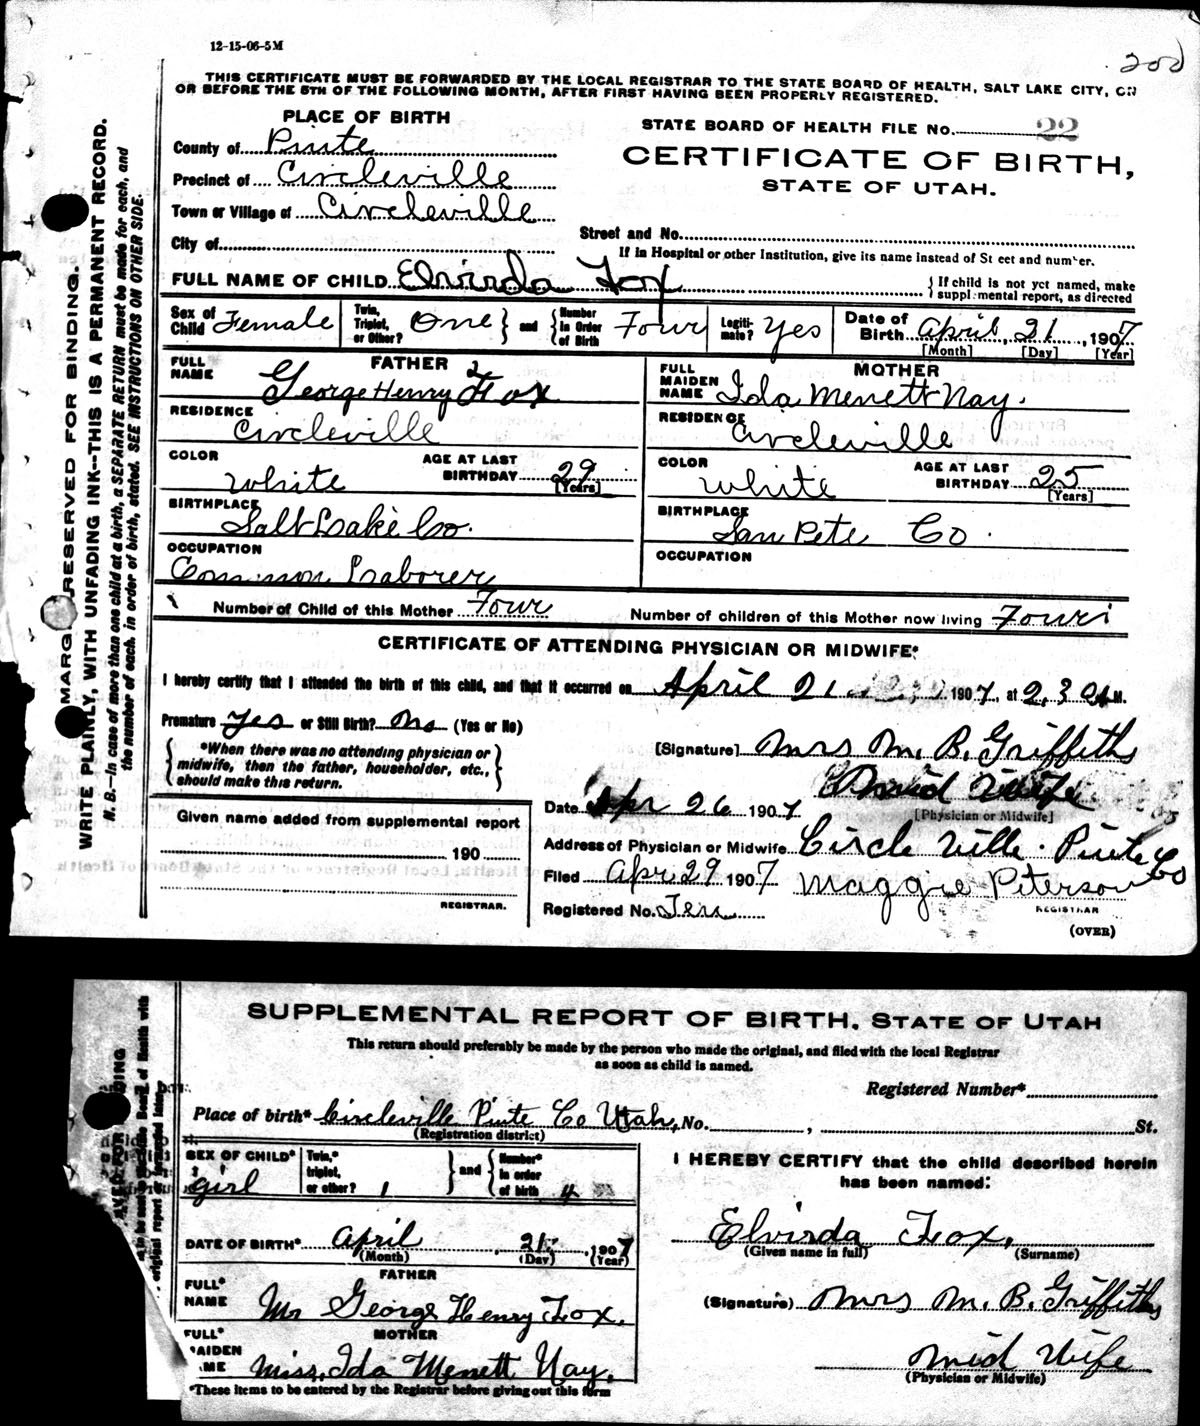 12-15-06-5M
THIS CERTIFICATE MUST BE FORWARDED BY THE LOCAL REGISTRAR TO THE STATE BOARD OF HEALTH, SALT LAKE CITY, ON
OR BEFORE THE 5TH OF THE FOLLOWING MONTH, AFTER FIRST HAVING BEEN PROPERLY REGISTERED.
MARG RESERVED FOR BINDING.
WRITE PLAINLY, WITH UNFADING INK--THIS IS A PERMANENT RECORD.
N. B.--In case of more than one child at a birth, a SEPARATE RETURN must be made for each, and
the number of each, in order of birth, stated. SEE INSTRUCTIONS ON OTHER SIDE.
PLACE OF BIRTH
County of Piute
Precinct of Circleville
Town or Village of Circleville
City of
STATE BOARD OF HEALTH FILE No. 22
CERTIFICATE OF BIRTH,
STATE OF UTAH.
Street and No.
If in Hospital or other Institution, give its name instead of St eet and number.
FULL NAME OF CHILD Elvirda Fox
If child is not yet named, make
supplemental report, as directed
Sex of Child Female Twin, Triplet, or Other? One and Number in Order of Birth Four Legiti-mate? Yes Date of Birth April 21, 1907
[Month] [Day] [Year]
FATHER
FULL NAME George Henry Fox
RESIDENCE Circleville
COLOR White AGE AT LAST BIRTHDAY 29 [Years]
BIRTHPLACE Salt Lake Co.
OCCUPATION Common Laborer
MOTHER
FULL MAIDEN NAME Ida Menett Nay.
RESIDENCE Circleville
COLOR White AGE AT LAST BIRTHDAY 25 [Years]
BIRTHPLACE San Pete Co.
OCCUPATION
Number of Child of this Mother Four Number of children of this Mother now living Four
CERTIFICATE OF ATTENDING PHYSICIAN OR MIDWIFE*
I hereby certify that I attended the birth of this child, and that it occurred on April 21 1907, at 2,30 A M.
Premature Yes or Still Birth? No (Yes or No)
*When there was no attending physician or
midwife, then the father, householder, etc.,
should make this return.
[Signature] Mrs M. B. Griffiths
Mid Wife
[Physician or Midwife]
Date Apr 26 1907
Address of Physician or Midwife Circle Ville. Piute Co
Given name added from supplemental report
190
REGISTRAR.
Filed Apr 29 1907 Maggie Peterson
REGISTRAR
Registered No. Ten
(OVER)
SUPPLEMENTAL REPORT OF BIRTH. STATE OF UTAH
This return should preferably be made by the person who made the original, and filed with the local Registrar
as soon as child is named.
Registered Number*
Place of birth* Circleville Piute Co Utah, No. , St.
(Registration district)
SEX OF CHILD* girl Twin,* triplet, or other? 1 and Number* in order of birth 4
DATE OF BIRTH* April 21, 1907
(Month) (Day) (Year)
FATHER
FULL* NAME Mr George Henry Fox.
MOTHER
FULL* AIDEN ME Miss. Ida Menett Nay.
*These items to be entered by the Registrar before giving out this form
I HEREBY CERTIFY that the child described herein
has been named:
Elvirda Fox.
(Given name in full) (Surname)
(Signature) Mrs M. B. Griffiths
Mid Wife
(Physician or Midwife)